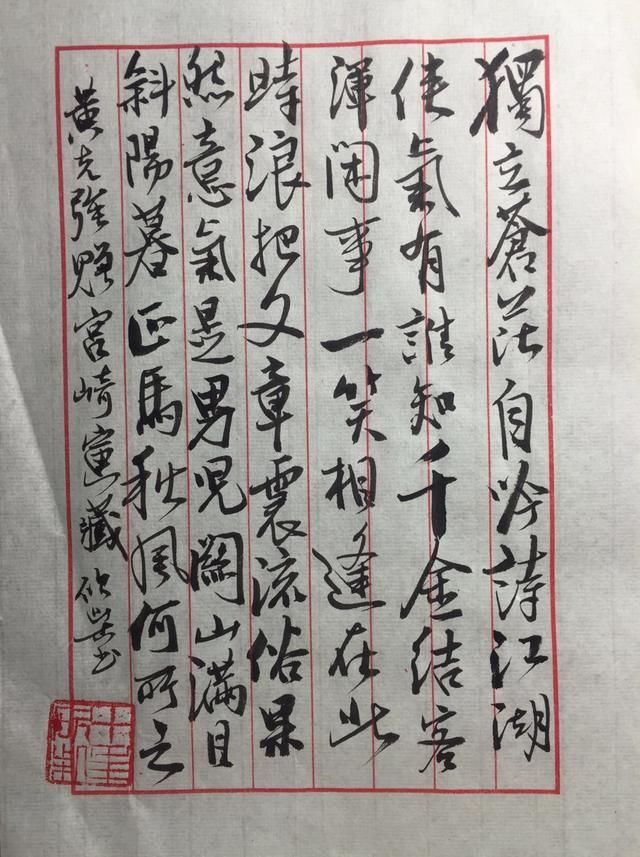 獨立蒼茫自吟詩江湖
俠氣有誰知千金結客
渾閑事一笑相逢在此
時浪把文章震流俗果
然意氣是男兒關山滿目
斜陽暮匹馬秋風何所之
黃克強贈宮崎寅藏